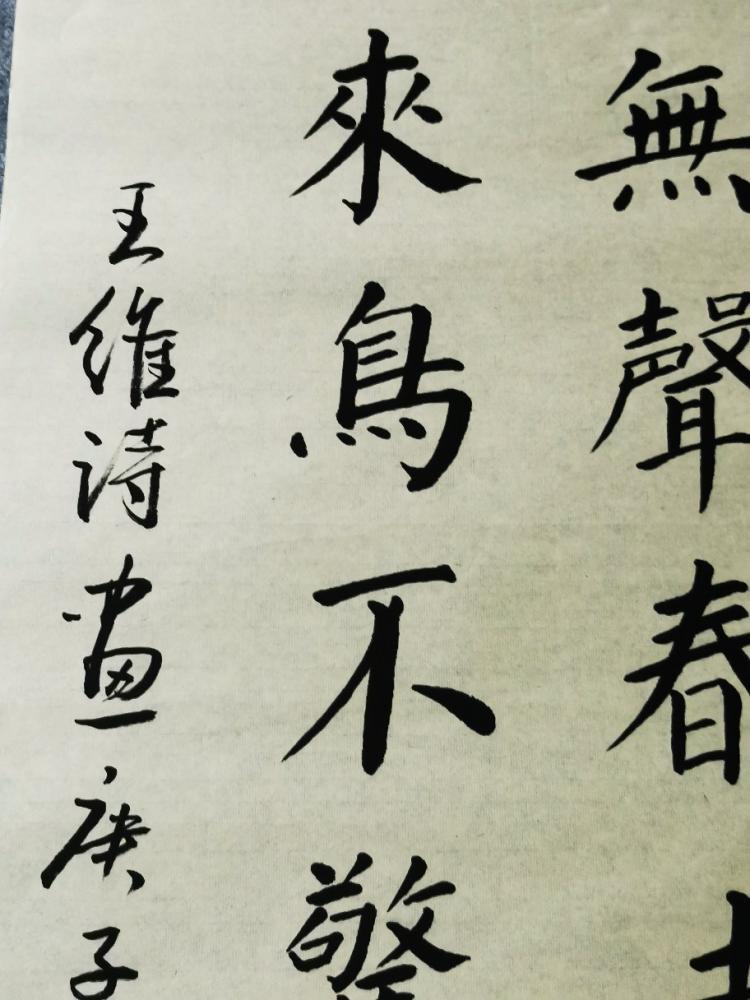 無聲春
來鳥不驚
王维诗畫庚子